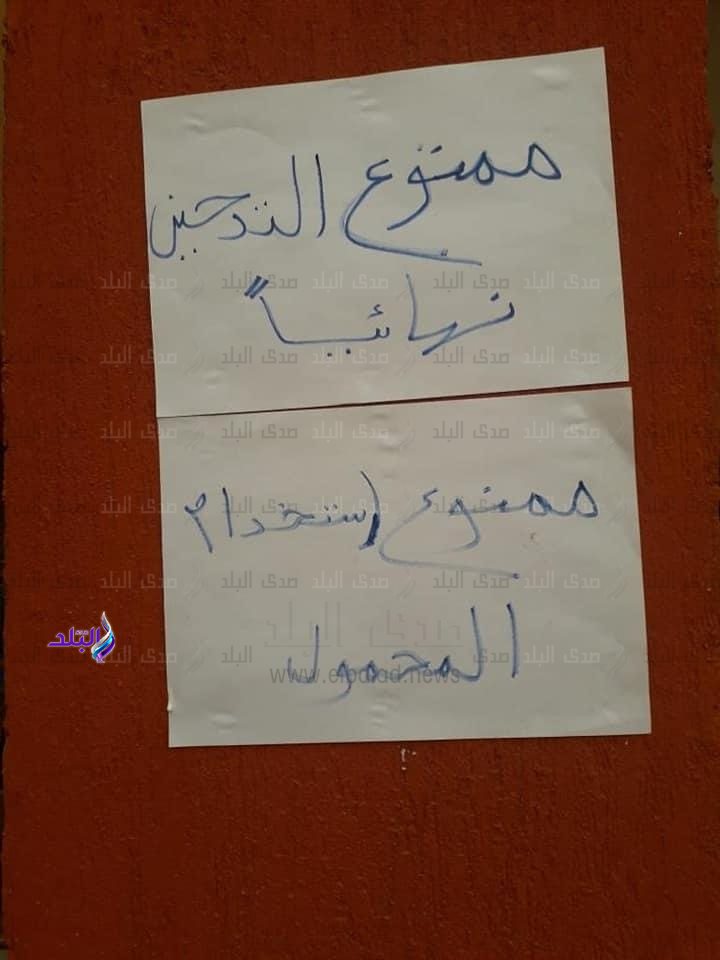 ممنوع التدخين
نهائياً
ممنوع إستخدام
المحمول
صدى البلد
www.elbalad.news